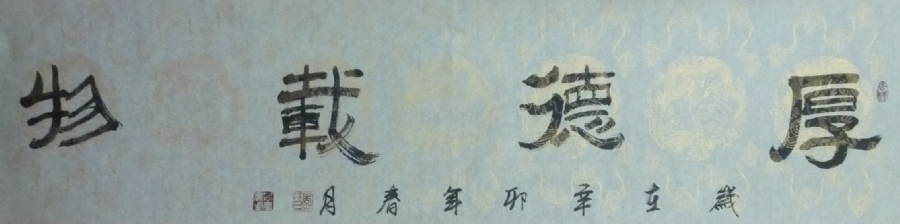 厚德載物
歲在辛卯年春月